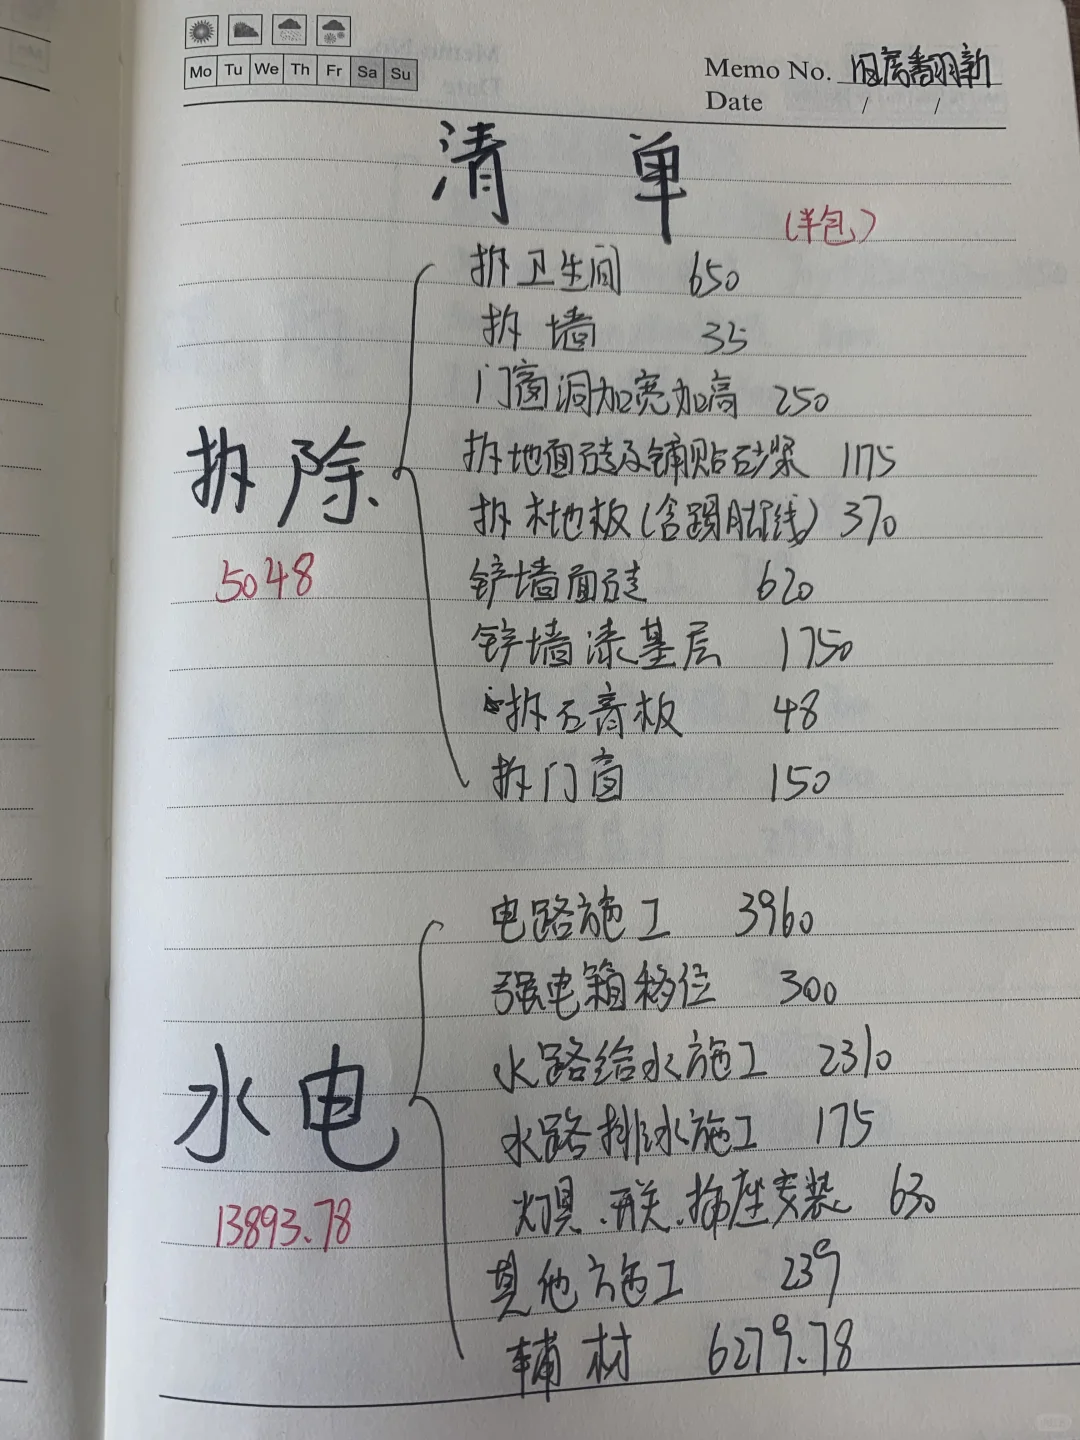 Mo Tu We Th Fr Sa Su
Memo No. 旧房翻新
Date / /
清单
(半包)
拆除
5048
拆卫生间 650
拆墙 35
门窗洞加宽加高 250
拆地面砖及铺贴砂浆 1175
拆木地板(含踢脚线) 370
铲墙面砖 620
铲墙漆基层 1750
拆石膏板 48
拆门窗 150
水电
13893.78
电路施工 3960
强电箱移位 300
水路给水施工 2310
水路排水施工 175
灯具、开关、插座安装 630
其他施工 239
辅材 6279.78